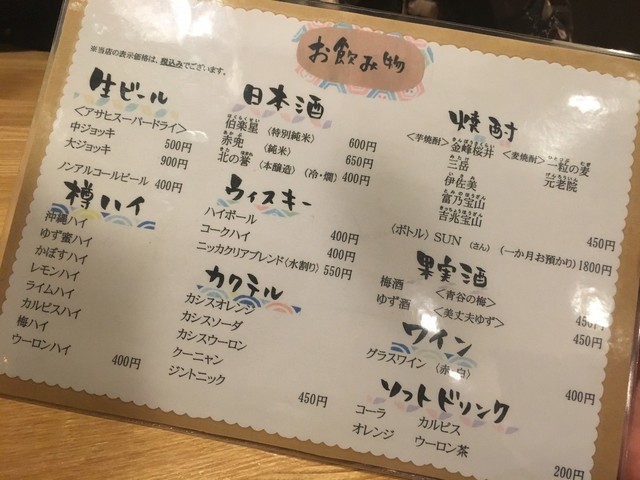 お飲み物
※当店の表示価格は、税込みでございます。
生ビール
＜アサヒスーパードライ＞
中ジョッキ 500円
大ジョッキ 900円
ノンアルコールビール 400円
樽ハイ
沖縄ハイ
ゆず蜜ハイ
かぼすハイ
レモンハイ
ライムハイ
カルピスハイ
梅ハイ
ウーロンハイ
400円
日本酒
伯楽星（特別純米） 600円
赤兎（純米） 650円
北の誉（本醸造）（冷・燗） 400円
ウィスキー
ハイボール 400円
コークハイ 400円
ニッカクリアブレンド（水割り） 550円
カクテル
カシスオレンジ
カシスソーダ
カシスウーロン
クーニャン
ジントニック
450円
焼酎
＜芋焼酎＞ 金峰桜井 ＜麦焼酎＞ 一粒の麦
三岳 元老院
伊佐美
富乃宝山
吉兆宝山
450円
（ボトル）SUN（さん）（一か月お預かり）1800円
果実酒
梅酒 ＜青谷の梅＞ 450円
ゆず酒 ＜美丈夫ゆず＞ 450円
ワイン
グラスワイン（赤・白） 400円
ソフトドリンク
コーラ カルピス
オレンジ ウーロン茶
200円